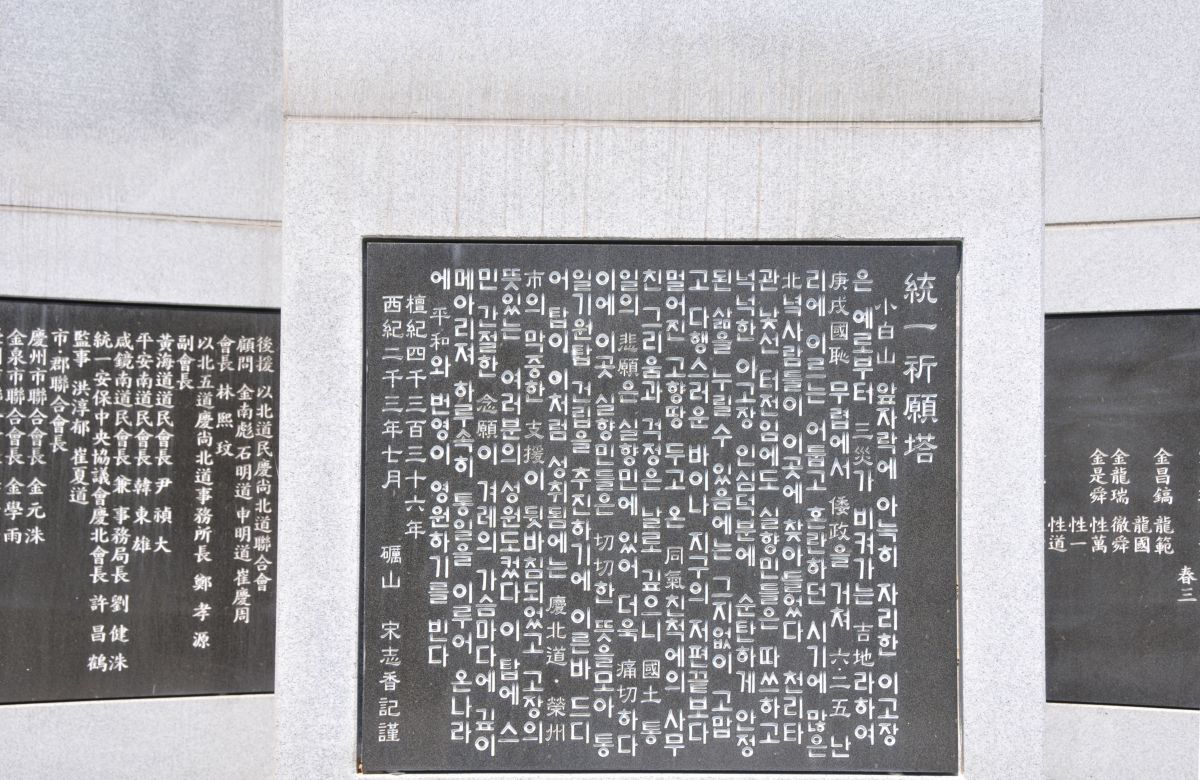 春三
金昌鎬 龍範
龍國
金龍瑞 徽舜
金是舜 性萬
性一
性道
統一祈願塔
小白山 앞자락에 아늑히 자리한 이고장
은 예로부터 三災가 비켜가는 吉地라하여
庚戌國恥 무렵에서 倭政을 거쳐 六·二五 난
리에 이르는 어둡고 혼란하던 시기에 많은
北녘사람들이 이곳에 찾아들었다 천리타
관 낯선 터전임에도 실향민들은 따쓰하고
넉넉한 이고장 인심덕분에 순탄하게 안정
된 삶을 누릴 수 있음에는 그지없이 고맙
고 다행스러운 바이나 지구의 저편끝보다
멀어진 고향땅 두고 온 同氣친척에의 사무
친 그리움과 걱정은 날로 깊으니 國土 통
일의 悲願은 실향민에 있어 더욱 痛切하다
이에 이곳 실향민들은 切切한 뜻을모아 통
일기원탑 건립을 추진하기에 이른바 드디
어 탑이 이처럼 성취됨에는 慶北道·榮州
市의 막중한 支援이 뒷바침되었고 고장의
뜻있는 여러분의 성원도컸다 이 탑에 스
민 간절한 念願이 겨레의 가슴마다에 깊이
메아리져 하루속히 통일을 이루어 온나라
에 平和와 번영이 영원하기를 빈다
檀紀四千三百三十六年
西紀二千三年七月 礪山 宋志香記謹
後援 以北道民慶尚北道聯合會
顧問 金南彪 石明道 申明道 崔慶周
會長 林熙玟
以北五道慶尚北道事務所長 鄭孝源
副會長
黃海道道民會長 尹禎大
平安南道民會長 韓東雄
咸鏡南道民會長 兼 事務局長 劉健洙
統一安保中央協議會慶北會長 許昌鶴
監事 洪淳郁 崔夏道
市·郡聯合會長
慶州市聯合會長 金元洙
金泉市聯合會長 金學雨